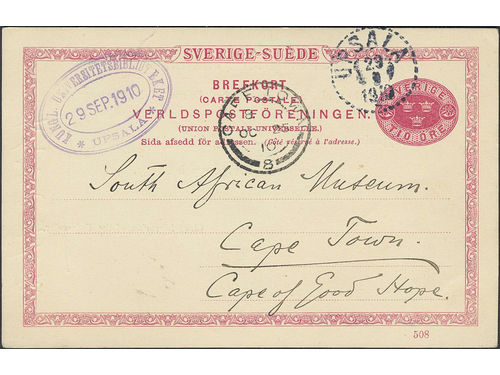 SVERIGE-SUÈDE
BREFKORT
(CARTE POSTALE)
VERLDSPOSTFÖRENINGEN.
(UNION POSTALE UNIVERSELLE.)
Sida afsedd för adressen. (Côté réservé à l'adresse.)
KUNGL. UNIVERSITETSBIBLIOTEKET
29 SEP. 1910
UPSALA
UPSALA
29
9
1910
SVERIGE
TIO ÖRE
OC
10
8
South African Museum.
Cape Town.
Cape of Good Hope.
508